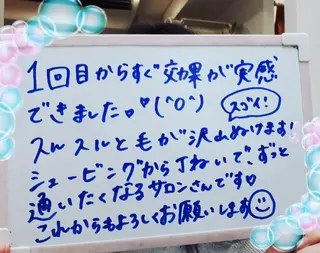 1回目からすぐ効果が実感
できました♡♡(^o^)
スゴイ!
スルスルと毛が沢山ぬけます!
シェービングから丁ねいで、ずっと
通いたくなるサロンさんです♡
これからもよろしくお願いします☺